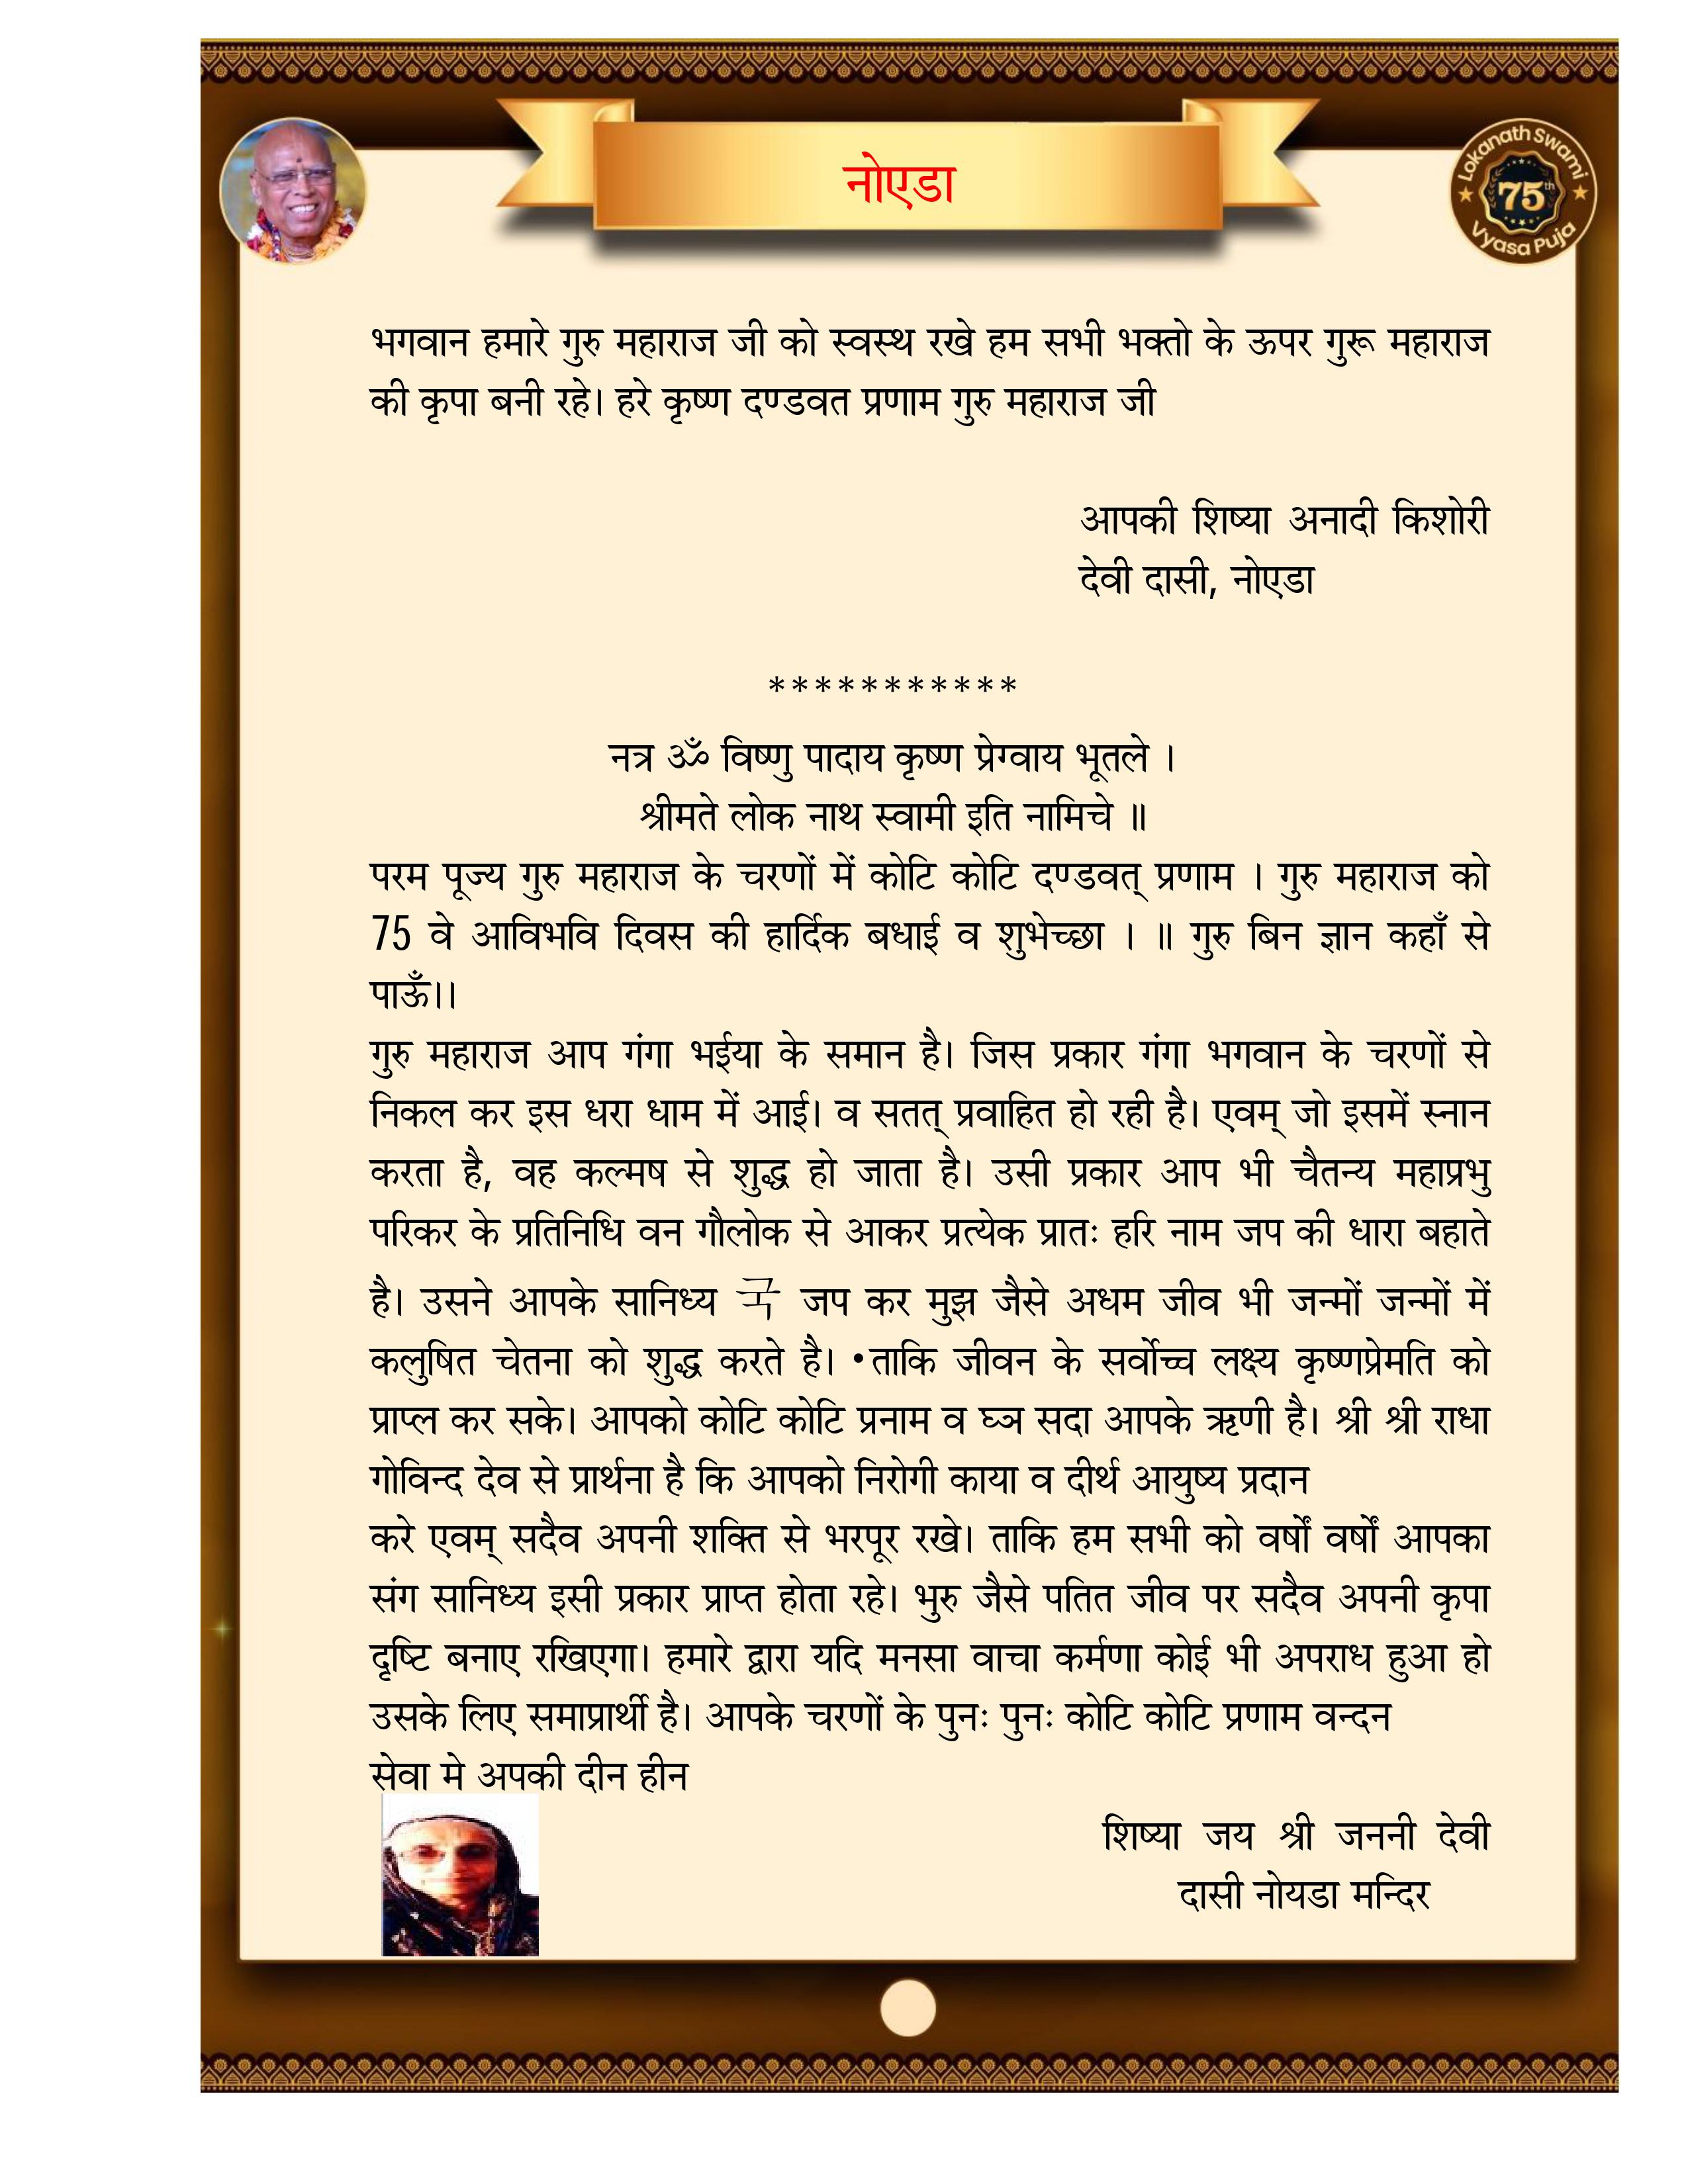 नोएडा
Lokanath Swami
75th
Vyasa Puja
भगवान हमारे गुरु महाराज जी को स्वस्थ रखे हम सभी भक्तो के ऊपर गुरू महाराज
की कृपा बनी रहे। हरे कृष्ण दण्डवत प्रणाम गुरु महाराज जी
आपकी शिष्या अनादी किशोरी
देवी दासी, नोएडा
***********
नत्र ॐ विष्णु पादाय कृष्ण प्रेग्वाय भूतले ।
श्रीमते लोक नाथ स्वामी इति नामिचे ॥
परम पूज्य गुरु महाराज के चरणों में कोटि कोटि दण्डवत् प्रणाम । गुरु महाराज को
75 वे आविभवि दिवस की हार्दिक बधाई व शुभेच्छा । ॥ गुरु बिन ज्ञान कहाँ से
पाऊँ।।
गुरु महाराज आप गंगा भईया के समान है। जिस प्रकार गंगा भगवान के चरणों से
निकल कर इस धरा धाम में आई। व सतत् प्रवाहित हो रही है। एवम् जो इसमें स्नान
करता है, वह कल्मष से शुद्ध हो जाता है। उसी प्रकार आप भी चैतन्य महाप्रभु
परिकर के प्रतिनिधि वन गौलोक से आकर प्रत्येक प्रातः हरि नाम जप की धारा बहाते
है। उसने आपके सानिध्य जप कर मुझ जैसे अधम जीव भी जन्मों जन्मों में
कलुषित चेतना को शुद्ध करते है। •ताकि जीवन के सर्वोच्च लक्ष्य कृष्णप्रेमति को
प्राप्ल कर सके। आपको कोटि कोटि प्रनाम व घ्ञ सदा आपके ऋणी है। श्री श्री राधा
गोविन्द देव से प्रार्थना है कि आपको निरोगी काया व दीर्थ आयुष्य प्रदान
करे एवम् सदैव अपनी शक्ति से भरपूर रखे। ताकि हम सभी को वर्षों वर्षों आपका
संग सानिध्य इसी प्रकार प्राप्त होता रहे। भुरु जैसे पतित जीव पर सदैव अपनी कृपा
दृष्टि बनाए रखिएगा। हमारे द्वारा यदि मनसा वाचा कर्मणा कोई भी अपराध हुआ हो
उसके लिए समाप्रार्थी है। आपके चरणों के पुनः पुनः कोटि कोटि प्रणाम वन्दन
सेवा मे अपकी दीन हीन
शिष्या जय श्री जननी देवी
दासी नोयडा मन्दिर